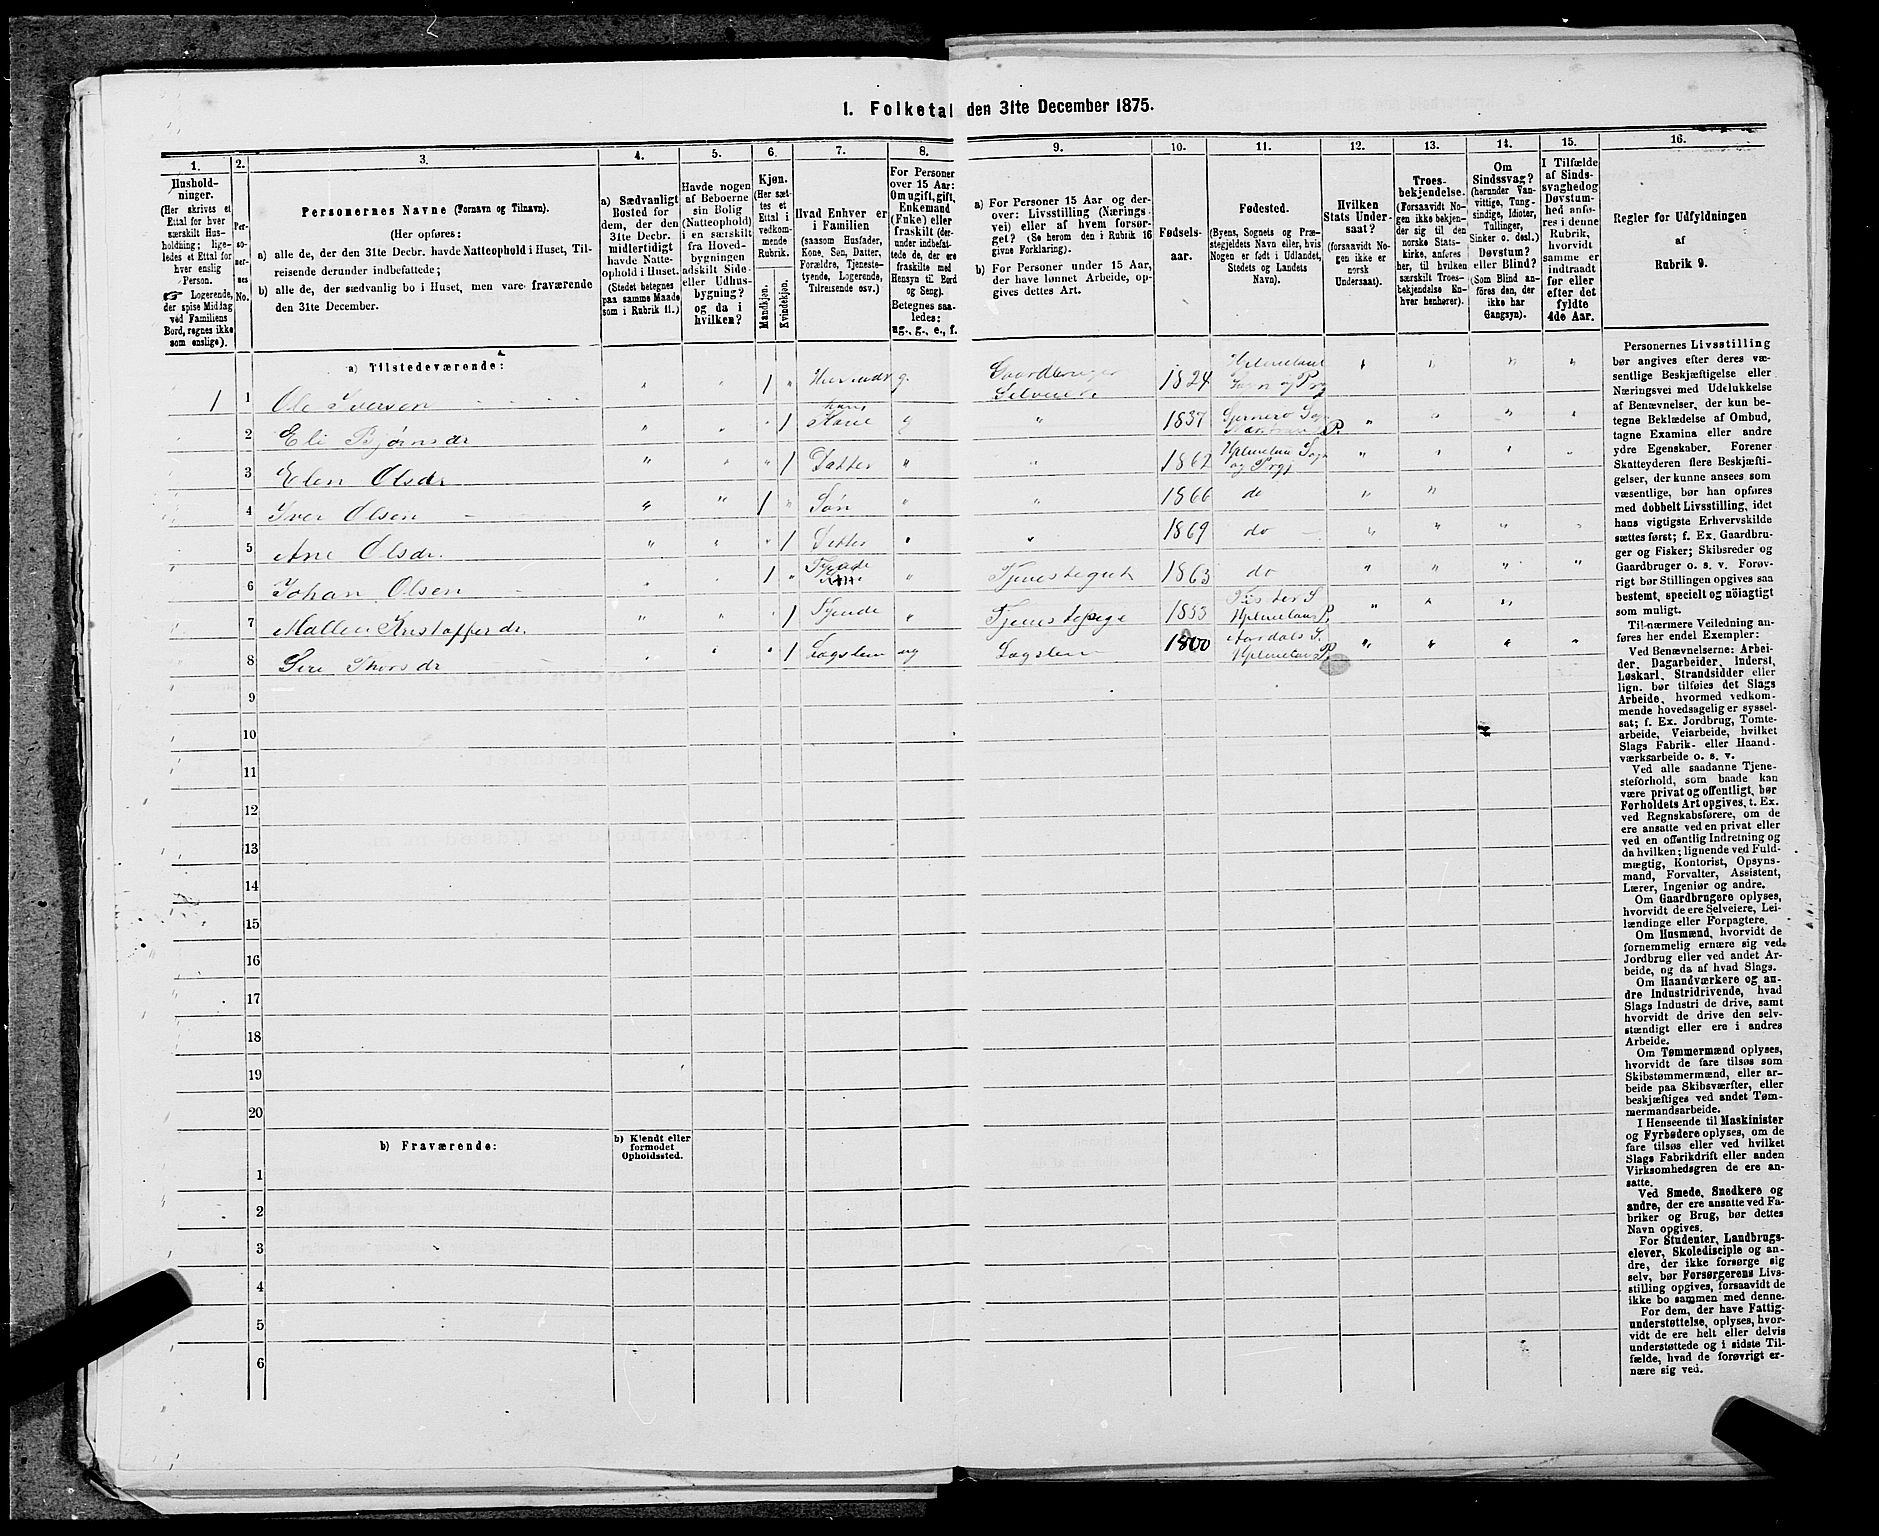 1. Folketal den 31te December 1875.
1.
2.
3.
4.
5.
6.
7.
8.
9.
10.
11.
12.
13.
14.
15.
16.
Hushold-
ninger.
(Her skrives et
Ettal for hver
særskilt Hus-
holdning; lige-
ledes et Ettal for
hver enslig
Person.
☞ Logerende,
der spise Middag
ved Familiens
Bord, regnes ikke
som enslige).
Per-
so-
ner-
nes
No.
Personernes Navne (Fornavn og Tilnavn).
(Her opføres:
a) alle de, der den 31te Decbr. havde Natteophold i Huset, Til-
reisende derunder indbefattede;
b) alle de, der sædvanlig bo i Huset, men vare fraværende
den 31te December.
a) Sædvanligt
Bosted for
dem, der den
31te Decbr.
midlertidigt
havde Natte-
ophold i Huset.
(Stedet betegnes
paa samme Maade
som i Rubrik 11.)
Havde nogen
af Beboerne
sin Bolig
(Natteophold)
i en særskilt
fra Hoved-
bygningen
adskilt Side-
eller Udhus-
bygning?
og da i
hvilken?
Kjøn.
(Her sæt-
tes et
Ettal i
vedkom-
mende
Rubrik.
Mandkjøn.
Kvindekjøn.
Hvad Enhver er
i Familien
(saasom Husfader,
Kone, Søn, Datter,
Forældre, Tjeneste-
tyende, Logerende,
Tilreisende osv.)
For Personer
over 15 Aar:
Om ugift, gift,
Enkemand
(Enke) eller
fraskilt (der-
under indbefat-
tede de, der ere
fraskilte med
Hensyn til Bord
og Seng).
Betegnes saa-
ledes:
ug., g., e., f.
a) For Personer 15 Aar og der-
over: Livsstilling (Nærings-
vei) eller af hvem forsør-
get? (Se herom den i Rubrik 16
givne Forklaring).
b) For Personer under 15 Aar,
der have lønnet Arbeide, op-
gives dettes Art.
Fødsels-
aar.
Fødested.
(Byens, Sognets og Præ-
stegjeldets Navn eller, hvis
Nogen er født i Udlandet,
Stedets og Landets
Navn).
Hvilken
Stats Under-
saat?
(forsaavidt No-
gen ikke er
norsk
Undersaat).
Troes-
bekjendelse.
(Forsaavidt No-
gen ikke bekjen-
der sig til den
norske Stats-
kirke, anføres
her, til hvilken
særskilt Troes-
bekjendelse En-
hver henhører).
Om
Sindssvag?
(herunder Van-
vittige, Tung-
sindige, Idioter,
Tullinger,
Sinker o. desl.)
Døvstum?
eller Blind?
(Som Blind an-
føres den, der
ikke har
Gangsyn).
I Tilfælde
af Sinds-
svaghed og
Døvstum-
hed anfø-
res i denne
Rubrik,
hvorvidt
samme er
indtraadt
før eller
efter det
fyldte
4de Aar.
Regler for Udfyldningen
af
Rubrik 9.
a) Tilstedeværende:
1 1 Ole Iversen " " 1 " g. Gaardbruger Selveier 1824 Hjelmeland Sogn og Prg " " " "
2 Eli Bjørnsdr " " " 1 hans Kone g " 1837 " " " "
3 Elen Olsdr " " " 1 Datter " " 1862 Hjelmeland Sogn og Prgj " " " "
4 Iver Olsen " " 1 " Søn " " 1866 do " "
5 Ane Olsdr. " " " 1 Datter " " 1869 do " " " "
6 Johan Olsen " " 1 " Tyende " Tjenestegut 1863 do " " " "
7 Malleri Kristoffersdr. " " " 1 Tyende " Tjenestepige 1853 Fister S Hjelmeland P. " " "
8 Siri Thorsdr " " " 1 Lægslem ug Lægslem 1800 Aardals S. Hjelmeland P. " " " "
9
10
11
12
13
14
15
16
17
18
19
20
b) Fraværende:
b) Kjendt eller
formodet
Opholdssted.
1
2
3
4
5
6
Personernes Livsstilling
bør angives efter deres væ-
sentlige Beskjæftigelse eller
Næringsvei med Udelukkelse
af Benævnelser, der kun be-
tegne Beklædelse af Ombud,
tagne Examina eller andre
ydre Egenskaber. Forener
Skatteyderen flere Beskjæfti-
gelser, der kunne ansees som
væsentlige, bør han opføres
med dobbelt Livsstilling, idet
hans vigtigste Erhvervskilde
sættes først; f. Ex. Gaardbru-
ger og Fisker; Skibsreder og
Gaardbruger o. s. v. Forøv-
rigt bør Stillingen opgives saa
bestemt, specielt og nøiagtigt
som muligt.
Til nærmere Veiledning an-
føres her endel Exempler:
Ved Benævnelserne: Arbei-
der, Dagarbeider, Inderst,
Løskarl, Strandsidder eller
lign. bør tilføies det Slags
Arbeide, hvormed vedkom-
mende hovedsagelig er syssel-
sat; f. Ex. Jordbrug, Tomte-
arbeide, Veiarbeide, hvilket
Slags Fabrik- eller Haand-
værksarbeide o. s. v.
Ved alle saadanne Tjene-
steforhold, som baade kan
være privat og offentligt, bør
Forholdets Art opgives, t. Ex.
ved Regnskabsførere, om de
ere ansatte ved en privat eller
ved en offentlig Indretning og
da hvilken; lignende ved Fuld-
mægtig, Kontorist, Opsyns-
mand, Forvalter, Assistent,
Lærer, Ingeniør og andre.
Om Gaardbrugere oplyses,
hvorvidt de ere Selveiere, Lei-
lændinge eller Forpagtere.
Om Husmænd, hvorvidt de
fornemmelig ernære sig ved
Jordbrug eller ved andet Ar-
beide, og da af hvad Slags.
Om Haandværkere og an-
dre Industridrivende, hvad
Slags Industri de drive, samt
hvorvidt de drive den selv-
stændigt eller ere i andres
Arbeide.
Om Tømmermænd oplyses,
hvorvidt de fare tilsøs som
Skibstømmermænd, eller ar-
beide paa Skibsværfter, eller
beskjæftiges ved andet Tøm-
mermandsarbeide.
I Henseende til Maskinister
og Fyrbødere oplyses, om de
fare tilsøs eller ved hvilket
Slags Fabrikdrift eller anden
Virksomhedsgren de ere an-
satte.
Ved Smede, Snedkere og
andre, der ere ansatte ved Fa-
briker og Brug, bør dettes
Navn opgives.
For Studenter, Landbrugs-
elever, Skoledisciple og an-
dre, der ikke forsørge sig
selv, bør Forsørgerens Livs-
stilling opgives, forsaavidt de
ikke bo sammen med denne.
For dem, der have Fattig-
understøttelse, oplyses, hvor-
vidt de ere helt eller delvis
understøttede og i sidste Til-
fælde, hvad de forøvrigt er-
nære sig ved.